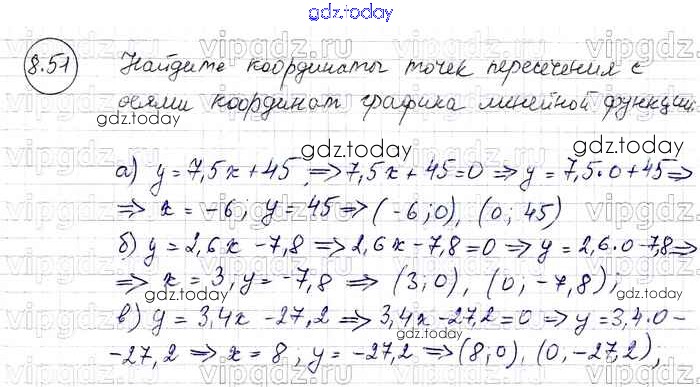 gdz.today
8.51 Найдите координаты точек пересечения с
осями координат графика линейной функции
gdz.today
gdz.today
а) y = 7,5x + 45; ⇒ 7,5x + 45 = 0 ⇒ y = 7,5·0 + 45 ⇒
⇒ x = -6; y = 45 ⇒ (-6; 0), (0; 45)
б) y = 2,6x - 7,8 ⇒ 2,6x - 7,8 = 0 ⇒ y = 2,6·0 - 7,8 ⇒
⇒ x = 3, y = -7,8 ⇒ (3; 0), (0; -7,8);
gdz.today
gdz.today
в) y = 3,4x - 27,2 ⇒ 3,4x - 27,2 = 0 ⇒ y = 3,4·0 -
- 27,2 ⇒ x = 8, y = -27,2 ⇒ (8; 0), (0, -27,2);
gdz.today